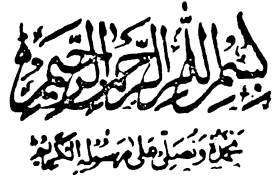 بسم الله الرحمن الرحيم
نحمده ونصلى على رسوله الكريم